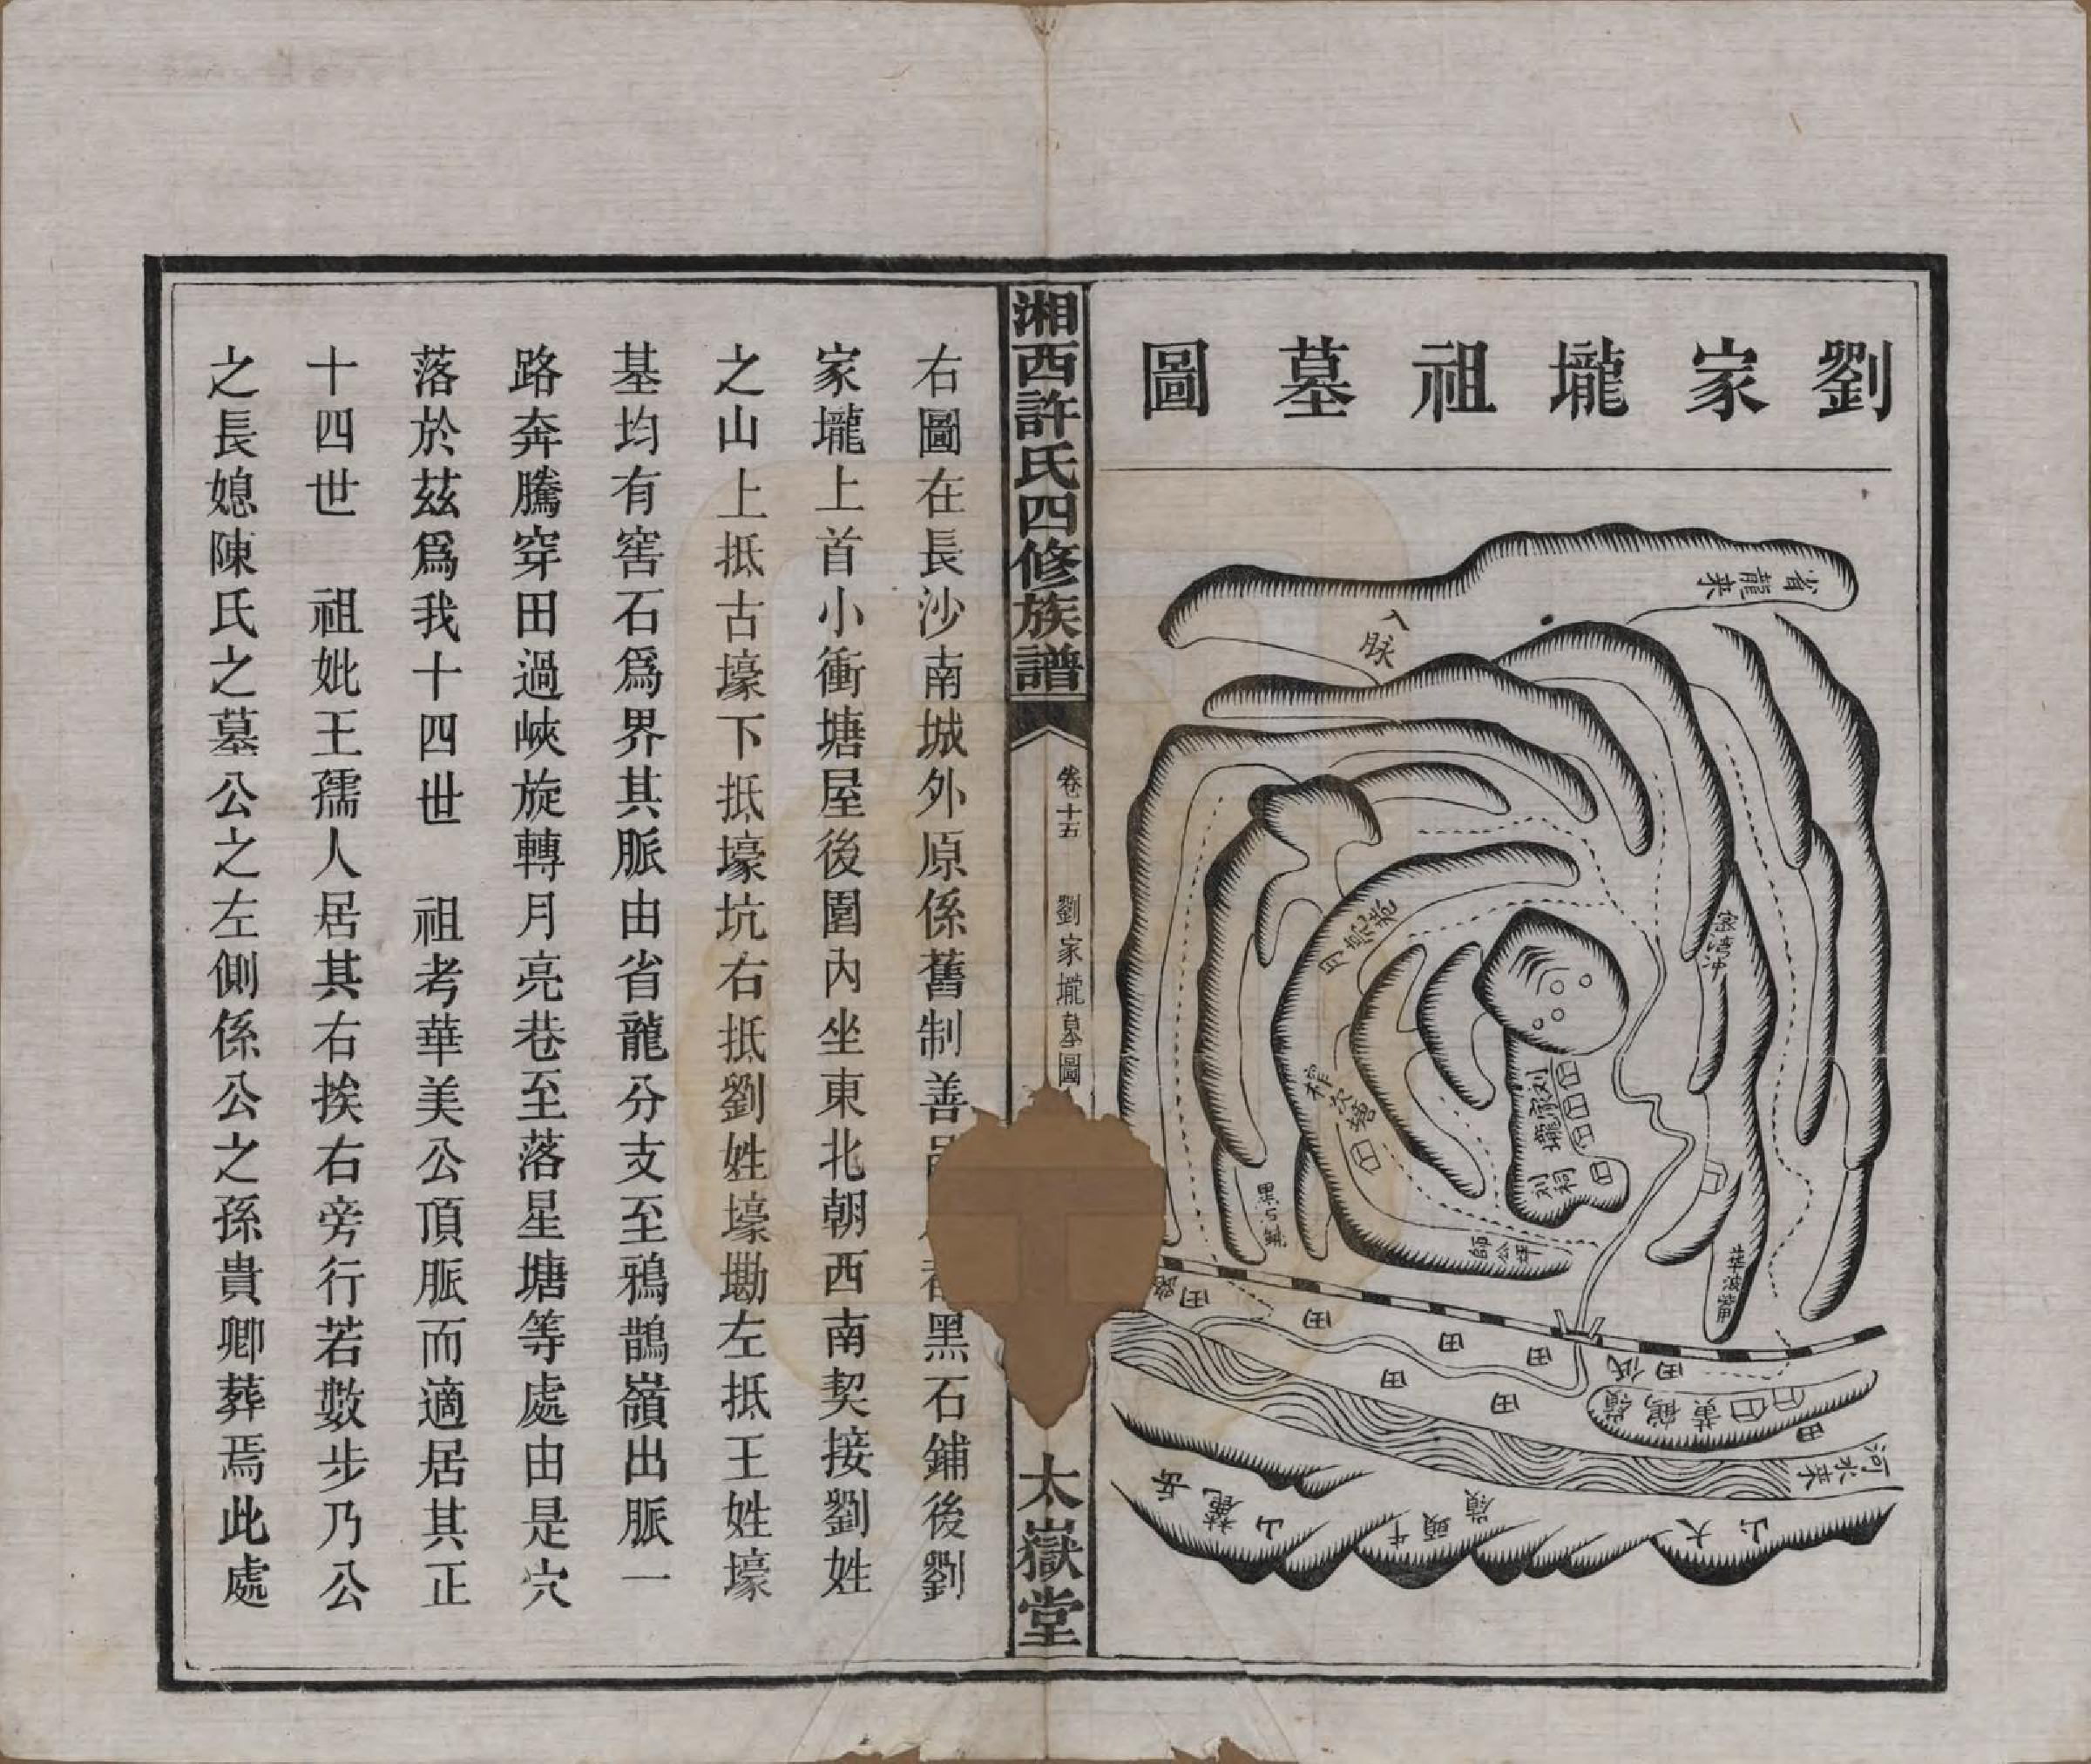 劉家壠祖墓圖
省龍来
入脉
月亮巷
家湾冲
刘家壠
刘祠
黑石舖
師公坪
田
田
田
田
田
田
田
田
黄鶴嶺
河水来
岳麓山
牛頭嶺
大山
湘西許氏四修族譜
卷十五
劉家壠墓圖
太嶽堂
右圖在長沙南城外原係舊制善黑石鋪後劉
家壠上首小衝塘屋後圍內坐東北朝西南契接劉姓
之山上抵古壕下抵壕坑右抵劉姓壕墈左抵王姓壕
基均有窖石爲界其脈由省龍分支至鴉鵲嶺出脈一
路奔騰穿田過峽旋轉月亮巷至落星塘等處由是穴
落於茲爲我十四世　祖考華美公頂脈而適居其正
十四世　祖妣王孺人居其右挨右旁行若數步乃公
之長媳陳氏之墓公之左側係公之孫貴卿葬焉此處